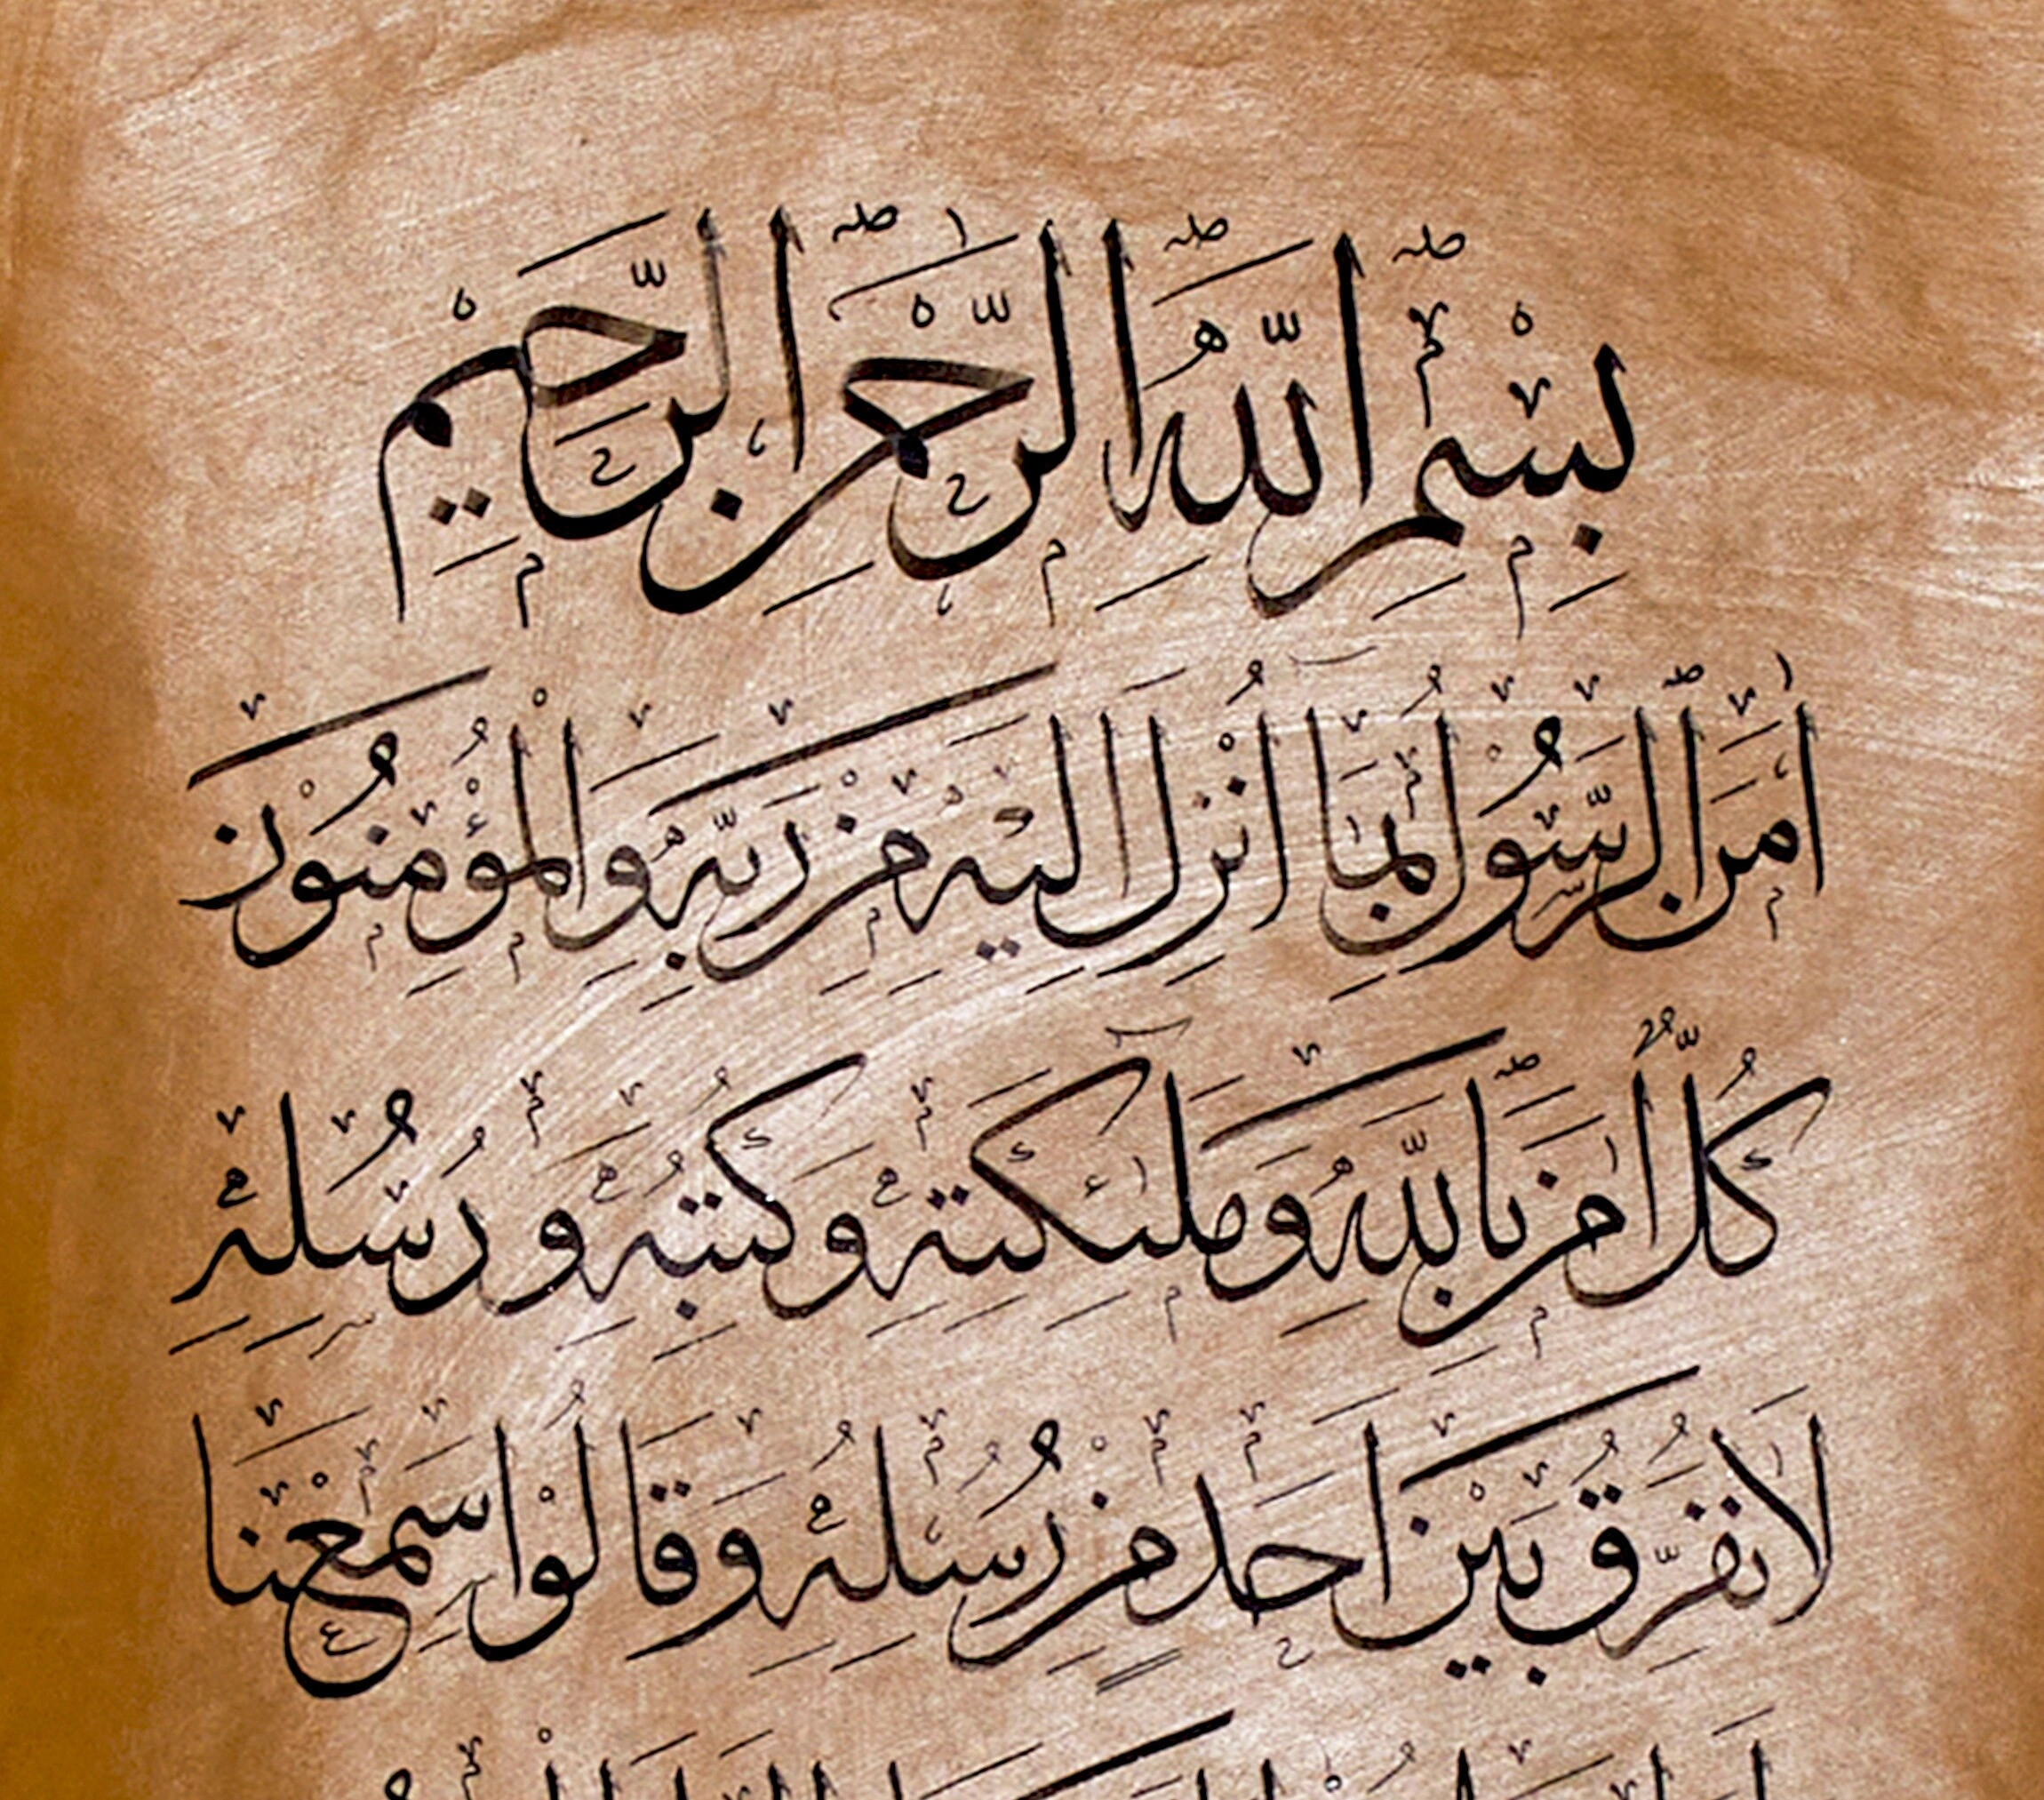 بِسْمِ اللّٰهِ الرَّحْمٰنِ الرَّحِيْمِ
اٰمَنَ الرَّسُوْلُ بِمَٓا اُنْزِلَ اِلَيْهِ مِنْ رَبِّهِ وَالْمُؤْمِنُوْنَ
كُلٌّ اٰمَنَ بِاللّٰهِ وَمَلٰٓئِكَتِهِ وَكُتُبِهِ وَرُسُلِهِ
لَا نُفَرِّقُ بَيْنَ اَحَدٍ مِنْ رُسُلِهِ وَقَالُوْا سَمِعْنَا